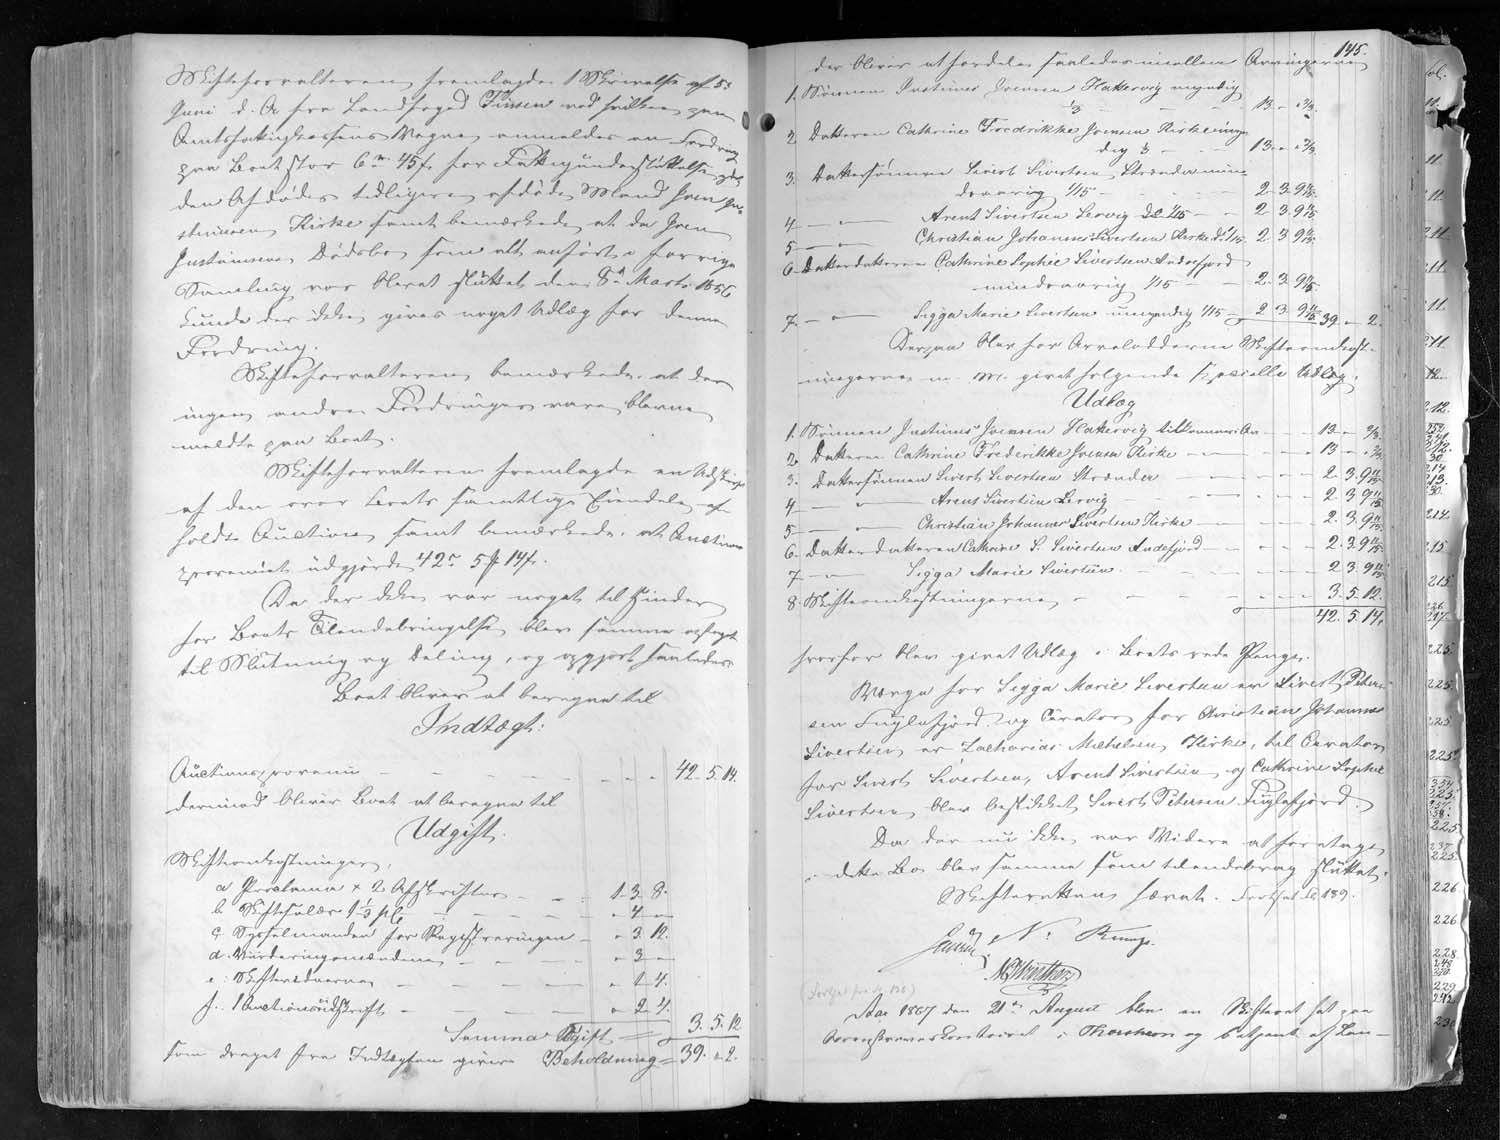 Skifteforvalteren fremlagde 1 Skrivelse af 5te
Juni d. A fra Landfoged Finsen ved hvilken paa
Amtsfattigkassens Vegne anmeldes en Fordring
paa Boet stor 6 rd 45 s for Fattigunderstøttelse ydet
den Afdødes tidligere afdøde Mand Joen Ju-
stinussen Kirke samt bemærkede at da Joen
Justinussens Dødsbo som alt anført i forrige
Samling var blevet sluttet den 8de Marts 1856
kunde der ikke gives noget Udlæg for denne
Fordring.
Skifteforvalteren bemærkede at der
ingen andre Fordringer vare blevne
meldte paa Boet.
Skifteforvalteren fremlagde en Udskrift
af den over Boets samtlige Eiendele af-
holdte Auction samt bemærkede, at Auctions
provenuet udgjorde 42 rd 5 # 14 s.
Da der ikke var noget til Hinder
for Boets Tilendebringelse blev samme optaget
til Slutning og Deling, og opgjort saaledes
Boet bliver at beregne til
Indtægt:
Auctionsprovenu - - - 42. 5. 14.
derimod bliver Boet at beregne til
Udgift.
Skifteomkostninger,
a Proclama + 2 Afskrifter - - 1. 3. 8.
b Skiftesalær 1 1/3 pC - - " 4 -
c Sysselmanden for Registreringen - " 3. 12.
d. Vurderingsmændene - - " 3 -
e. Skiftevidnerne - - " 1. 4.
f. 1 Auctionsudskrift - - " 2. 4.
Summa Udgift = 3. 5. 12
som draget fra Indtægten giver Beholdning = 39. " 2.
145.
der bliver at fordele saaledes mellem Arvingerne
1. Sønnen Justinus Joensen Hattervig myndig
1/3 - - - 13 - " 2/3.
2 Datteren Cathrine Fredrikke Joensen Kirke myn-
dig 1/3 - - 13 - " 2/3
3. Dattersønnen Sivert Sivertsen Strænder min-
dreaarig 1/15 - - 2. 3. 9 11/15
4 — " — Arent Sivertsen Lervig do 1/15 - 2 3. 9 11/15
5 — " — Christian Johannes Sivertsen Kirke do 1/15 2. 3. 9 11/15
6 Datterdatteren Cathrine Sophie Sivertsen Andefjord
mindreaarig 1/15 - - 2. 3. 9 11/15
7. — " — Sigga Marie Sivertsen umyndig 1/15 2 3. 9 11/15 39 " 2.
Derpaa blev for Arvelodderne Skifteomkost-
ningerne m. M. givet følgende specielle Udlæg,
Udlæg
1. Sønnen Justinus Joensen Hattervig tilkommer Arv - - 13 - " 2/3.
2. Datteren Cathrine Frederikke Joensen Kirke - - 13 - " 2/3
3. Dattersønnen Sivert Sivertsen Strænder - - 2. 3. 9 11/15
4 — " — Arent Sivertsen Lervig - - 2. 3 9 11/15
5 — " — Christian Johannes Sivertsen Kirke - - 2. 3. 9 11/15
6. Datterdatteren Cathrine S. Sivertsen Andefjord - - 2. 3 9 11/15
7 — " — Sigga Marie Sivertsen - - 2 3. 9 11/15
8. Skifteomkostningerne, - - 3. 5. 12
42. 5. 14,
hvorfor blev givet Udlæg i Boets rede Penge.
Værge for Sigga Marie Sivertsen er Sivert Peter-
sen Fuglefjord og Curator for Christian Johannes
Sivertsen er Zacharias Michelsen Kirke, til Curator
for Sivert Sivertsen, Arent Sivertsen og Cathrine Sophie
Sivertsen blev beskikket Sivert Petersen Fuglefjord.
Da der nu ikke var Videre at foretage
i dette Bo blev samme som tilendebragt sluttet.
Skifteretten hævet. Fortsat fol 189.
N:
(Fortsat fra fol. 138)
Aar 1867 den 21de August blev en Skifteret sat paa
Sorenskriverkontoiret i Thorshavn og betjent af Con-